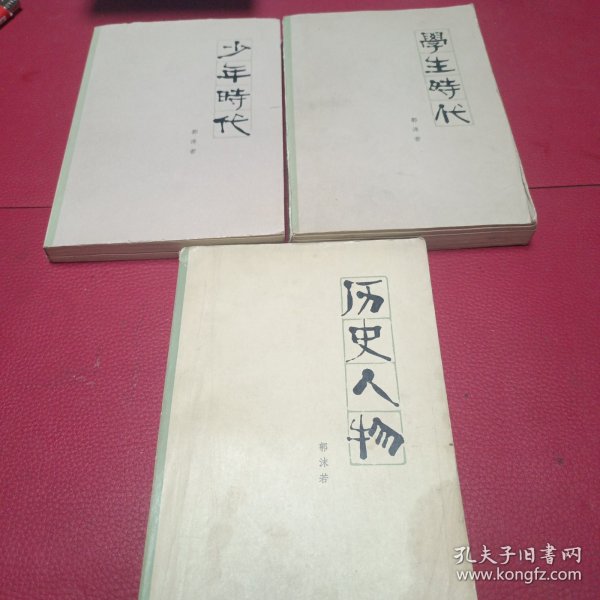 少年時代
郭沫若
學生時代
郭沫若
历史人物
郭沫若
孔夫子旧书网
www.kongfz.com